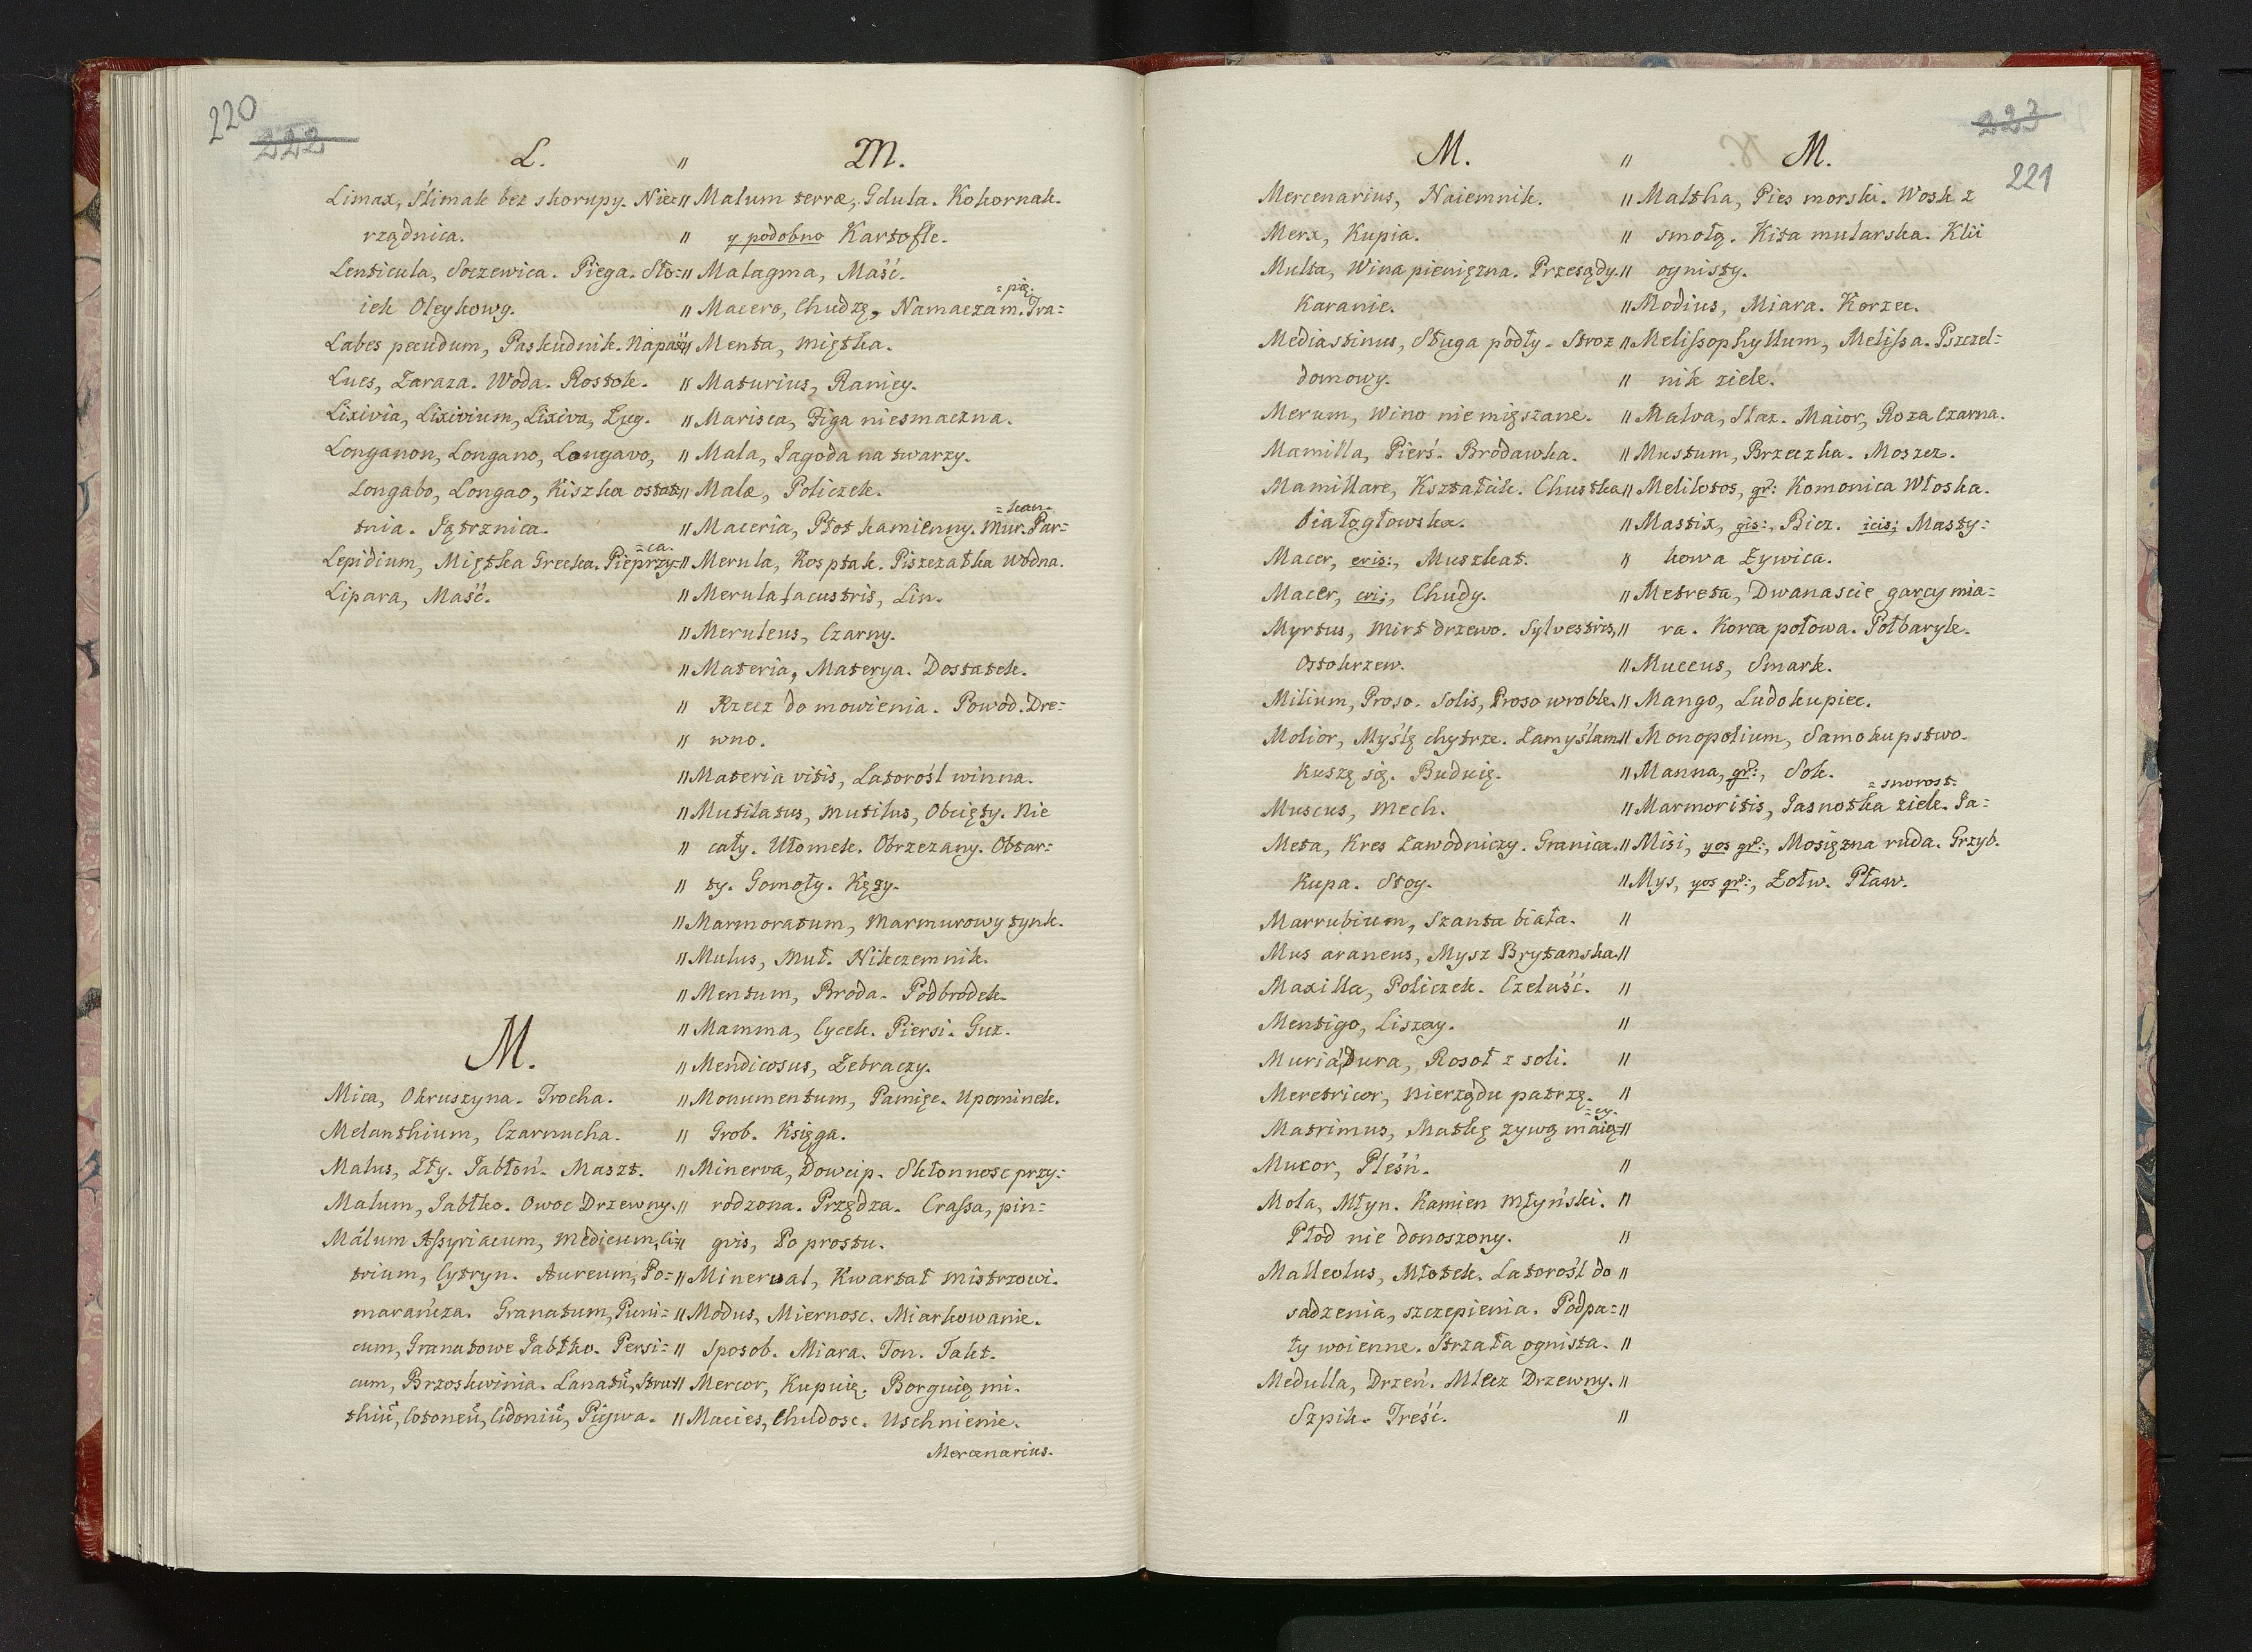 220
222
L.
Limax, Ślimak bez skorupy. Niez
rządnica.
Lenticula, Soczewica. Piega. Sło=
iek Oleykowy.
Labes pecudum, Paskudnik. Napaść
Lues, Zaraza. Woda. Rostok.
Lixivia, Lixivium, Lixiva, Ług.
Longanon, Longano, Longavo,
Longabo, Longao, Kiszka ostat=
tnia. Jątrznica.
=ca.
Lepidium, Miętka Grecka. Pieprzy=
Lipara, Maść.
M.
Mica, Okruszyna. Trocha.
Melanthium, Czarnucha.
Malus, Zły. Jabłoń. Maszt.
Malum, Jabłko. Owoc Drzewny.
Málum Aſsyriacum, Medicum, Ci=
trium, Cytryn. Aureum, Po=
marańcza. Granatum, Puni=
cum, Granatowe Jabłko. Persi=
cum, Brzoskwinia. Lanatū, Stru=
thiū, Cotoneū, Cidoniū, Pigwa.
M.
Malum terræ, Gdula. Kokornak.
y podobno Kartofle.
Malagma, Maść.
=pię.
Macero, Chudzę, Namaczam. Tra=
Menta, Miętka.
Maturius, Raniey.
Marisca, Figa niesmaczna.
Mala, Jagoda na twarzy.
Malæ, Policzek.
=kan.
Maceria, Płot kamienny. Mur. Par=
Merula, Kos ptak. Piszczatka wodna.
Merula lacustris, Lin.
Meruleus, Czarny.
Materia, Materya. Dostatek.
Rzecz do mowienia. Powod. Dre=
wno.
Materia vitis, Latorośl winna.
Mutilatus, Mutilus, Obcięty. Nie
cały. Ułomek. Obrzezany. Obtar=
ty. Gomoły. Kęsy.
Marmoratum, Marmurowy tynk.
Mulus, Muł. Nikczemnik.
Mentum, Broda. Podbrodek.
Mamma, Cycek. Piersi. Guz.
Mendicosus, Żebraczy.
Monumentum, Pamięc. Upominek.
Grob. Księga.
Minerva, Dowcip. Skłonnosc przy=
rodzona. Przędza. Craſsa, pin=
gvis, Po prostu.
Minerval, Kwartał Mistrzowi.
Modus, Miernosc. Miarkowanie.
Sposob. Miara. Ton. Takt.
Mercor, Kupuię. Borguię mi.
Macies, Chudosc. Uschnienie.
Mercenarius.
223
221
M.
Mercenarius, Naiemnik.
Merx, Kupia.
Multa, Wina pienięzna. Przesądy.
Karanie.
Mediastinus, Sługa podły. Stroz
domowy.
Merum, Wino nie mięszane.
Mamilla, Pierś. Brodawka.
Mamillare, Kształcik. Chustka
białogłowska.
Macer, eris:, Muszkat.
Macer, cri:, Chudy.
Myrtus, Mirt drzewo. Sylvestris,
Ostokrzew.
Milium, Proso. Solis, Proso wroble.
Molior, Myślę chytrze. Zamyślam.
Kuszę się. Buduię.
Muscus, Mech.
Meta, Kres Zawodniczy. Granica.
Kupa. Stog.
Marrubium, Szanta biała.
Mus araneus, Mysz Brytanska.
Maxilla, Policzek. Czeluść.
Mentigo, Liszay.
Muria, Dura, Rosoł z soli.
Meretricor, Nierządu patrzę.
=cy.
Matrimus, Matkę zywą maią=
Mucor, Pleśń.
Mola, Młyn. Kamien Młyński.
Płod nie donoszony.
Malleolus, Młotek. Latorośl do
sadzenia, szczepienia. Podpa=
ły woienne. Strzała ognista.
Medulla, Drzeń. Mlecz Drzewny.
Szpik. Treść.
M.
Maltha, Pies morski. Wosk z
smołą. Kita mularska. Klii
ognisty.
Modius, Miara. Korzec.
Meliſsophyllum, Meliſsa. Pszczel=
nik ziele.
Malva, Slaz. Maior, Roza Czarna.
Mustum, Brzeczka. Moszcz.
Melilotos, gr: Komonica Włoska.
Mastix, gis:, Bicz. icis; Masty=
kowa Żywica.
Metreta, Dwanascie garcy mia=
ra. Korca połowa. Połbaryłe.
Muccus, Smark.
Mango, Ludokupiec.
Monopolium, Samokupstwo.
Manna, gr:, Sok.
=snorost.
Marmoritis, Jasnotka ziele. Ja=
Misi, yos gr:, Mosięzna ruda. Grzyb.
Mys, yos gr:, Żołw. Pław.